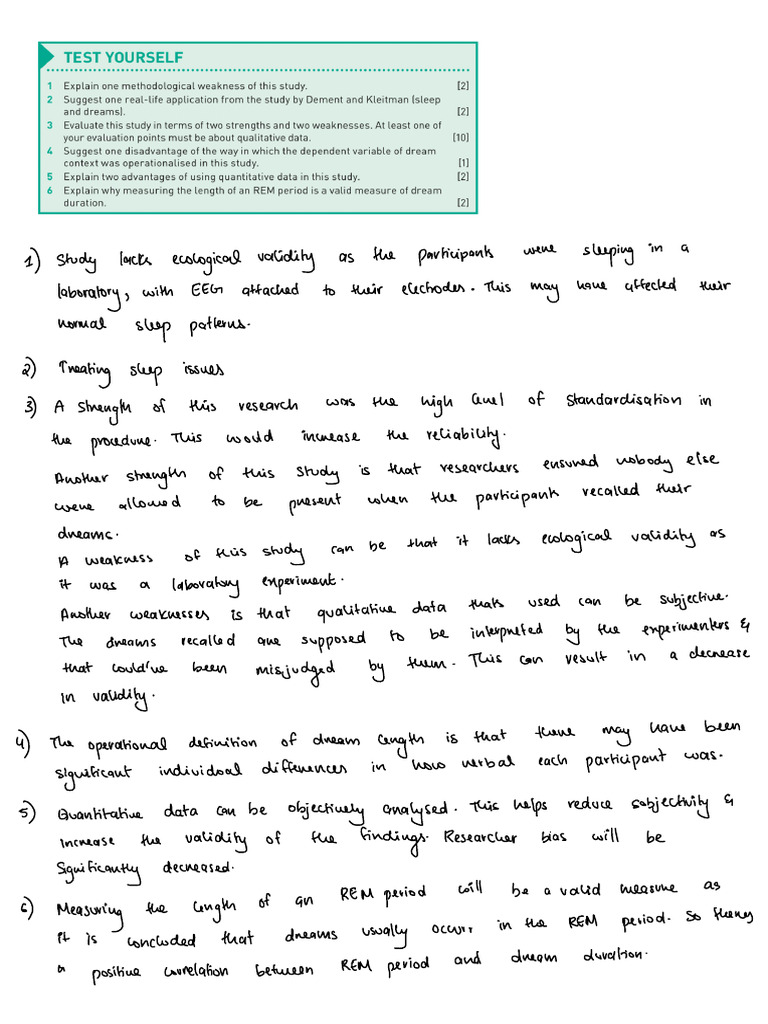 TEST YOURSELF
1 Explain one methodological weakness of this study. [2]
2 Suggest one real-life application from the study by Dement and Kleitman (sleep
and dreams). [2]
3 Evaluate this study in terms of two strengths and two weaknesses. At least one of
your evaluation points must be about qualitative data. [10]
4 Suggest one disadvantage of the way in which the dependent variable of dream
context was operationalised in this study. [1]
5 Explain two advantages of using quantitative data in this study. [2]
6 Explain why measuring the length of an REM period is a valid measure of dream
duration. [2]
1) Study lacks ecological validity as the participants were sleeping in a
laboratory, with EEG attached to their electrodes. This may have affected their
normal sleep patterns.
2) Treating sleep issues
3) A strength of this research was the high level of standardisation in
the procedure. This would increase the reliability.
Another strength of this study is that researchers ensured nobody else
were allowed to be present when the participants recalled their
dreams.
A weakness of this study can be that it lacks ecological validity as
it was a laboratory experiment.
Another weaknesses is that qualitative data thats used can be subjective.
The dreams recalled are supposed to be interpreted by the experimenters &
that could've been misjudged by them. This can result in a decrease
in validity.
4) The operational definition of dream length is that there may have been
significant individual differences in how verbal each participant was.
5) Quantitative data can be objectively analysed. This helps reduce subjectivity &
increase the validity of the findings. Researcher bias will be
significantly decreased.
6) Measuring the length of an REM period will be a valid measure as
it is concluded that dreams usually occurr in the REM period. So theres
a positive correlation between REM period and dream duration.